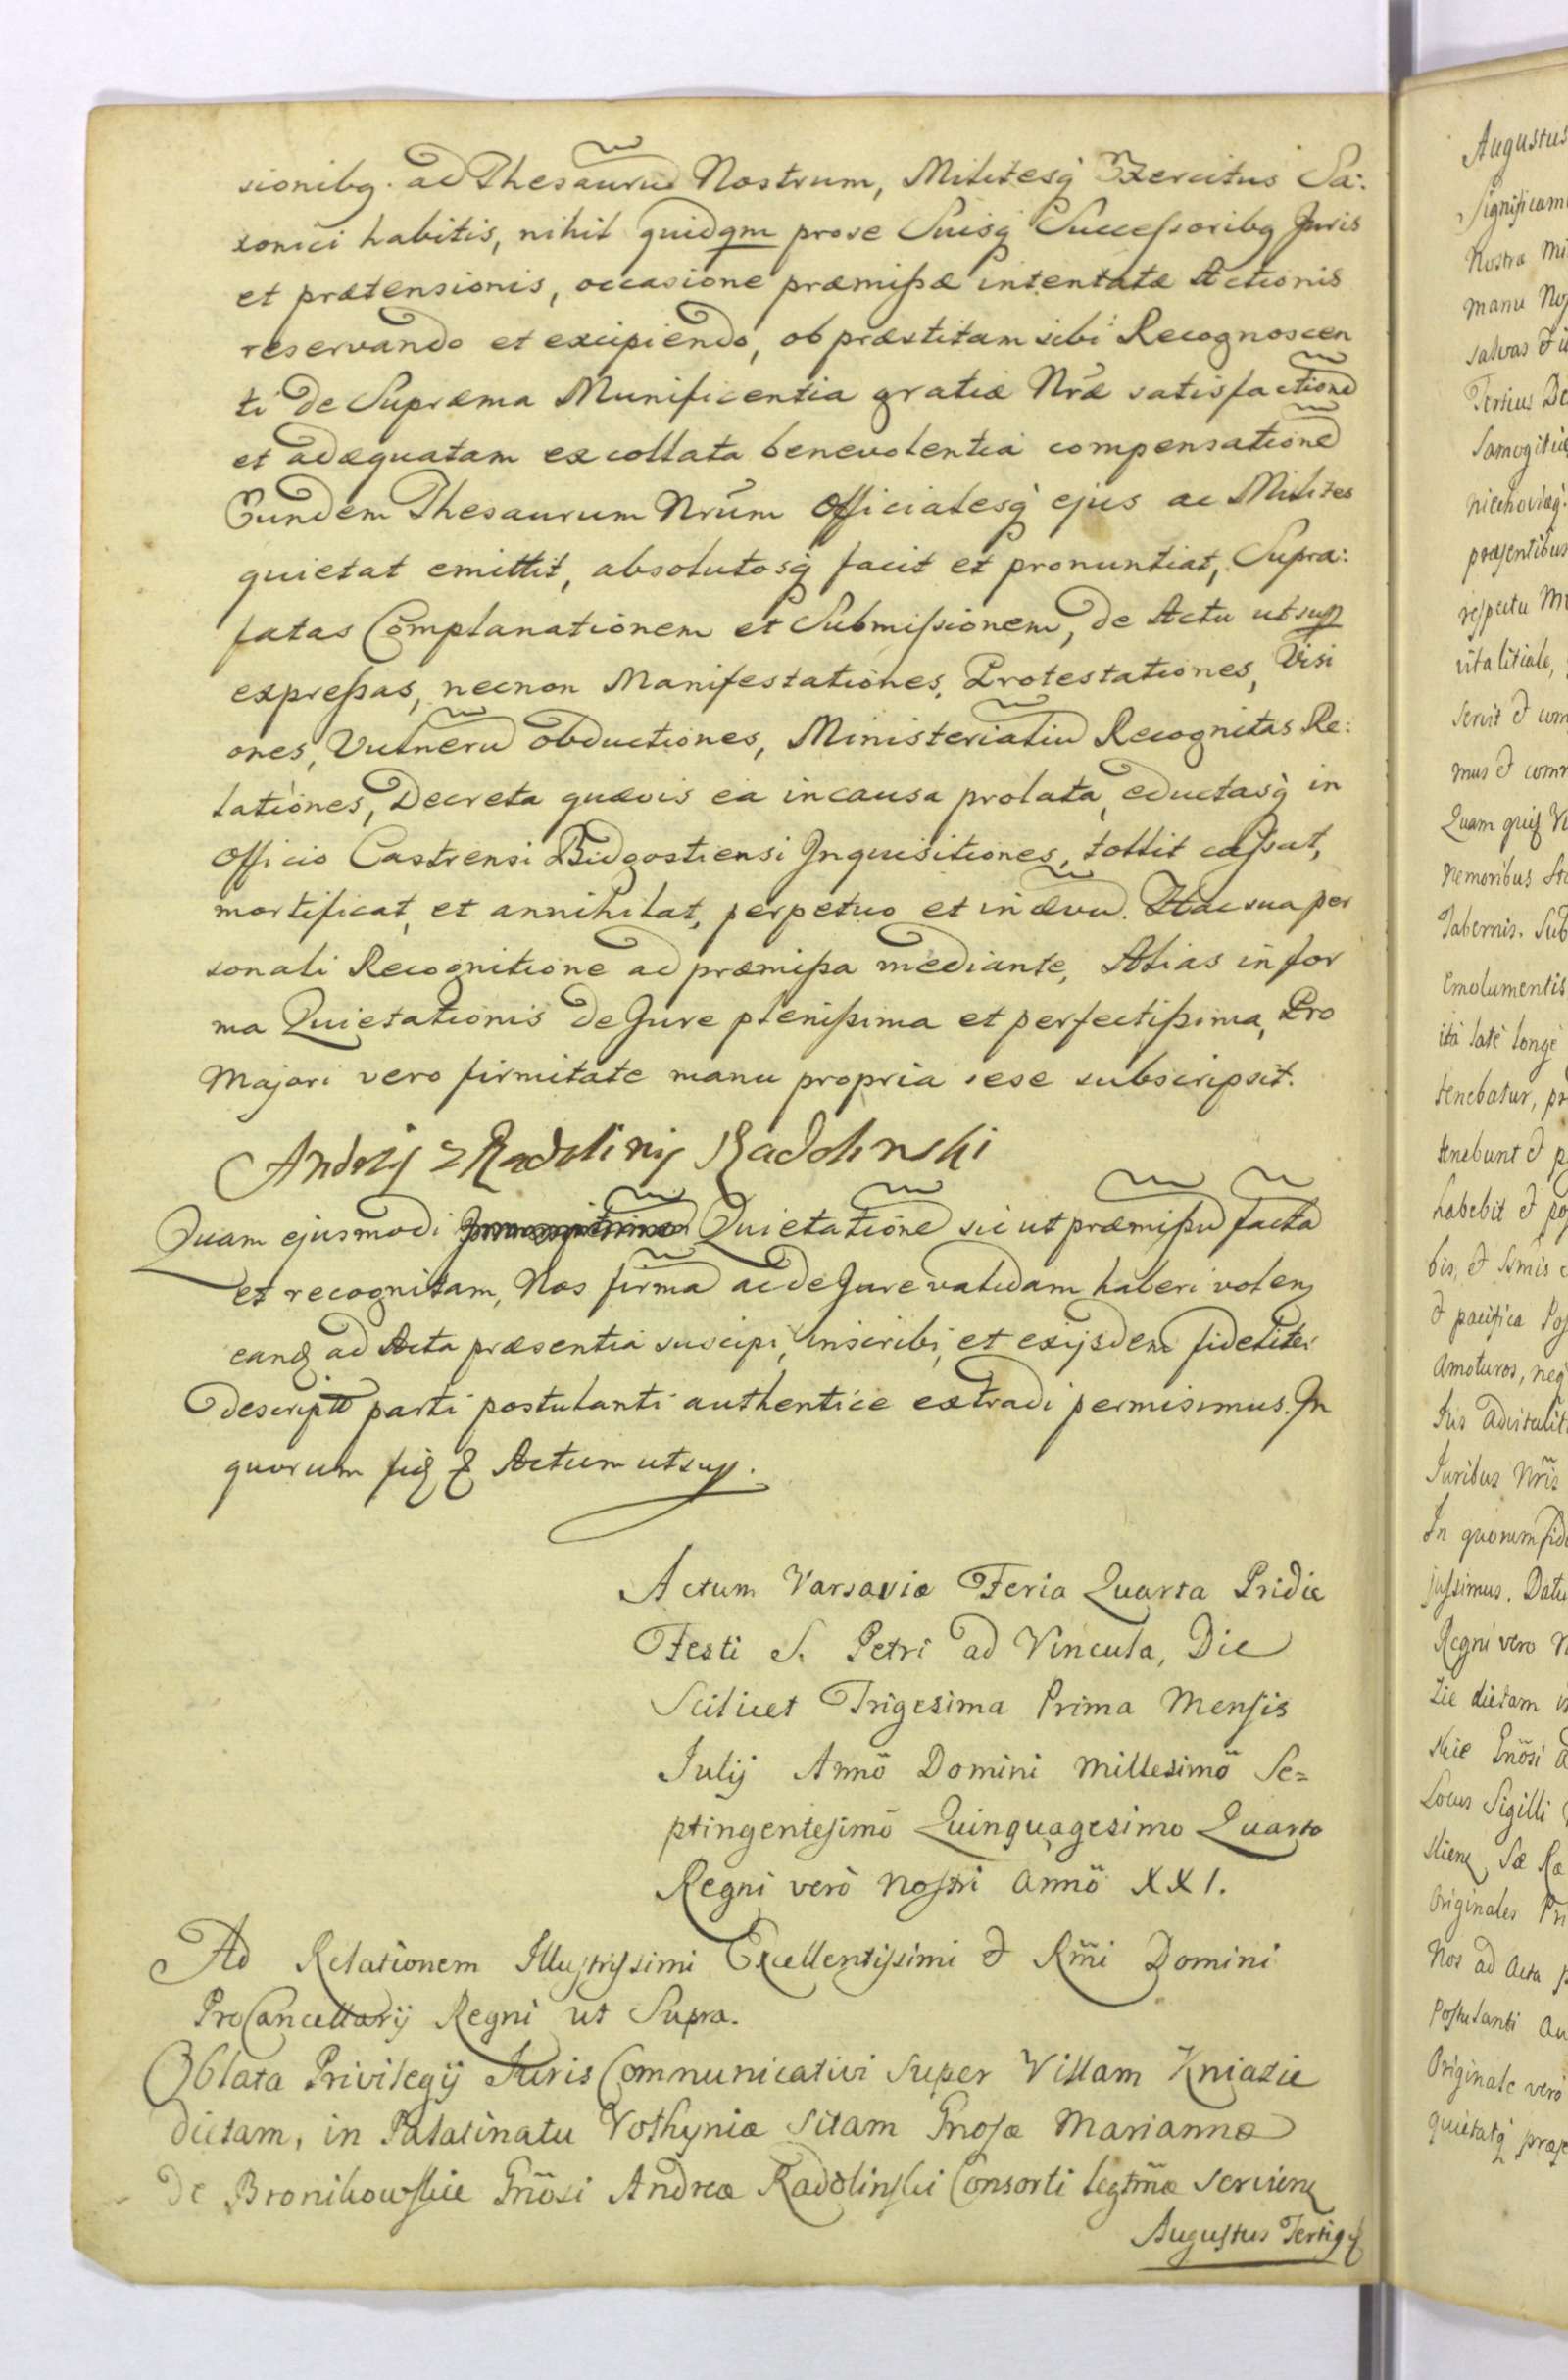 sionibq. ad Thesauru Nostrum, Militesq Exercitus Sa:
xonici habitis, nihil quidqm prose Suisq Successoribq Juris
et prætensionis, occasione præmissæ intentatæ Actionis
reservando et excipiendo, ob præstitam sibi Recognoscen
ti de Supræma Munificentia gratiæ Nræ satisfactione
et adæquatam ex collata benevolentia compensatione
Eundem Thesaurum Nrum Officialesq ejus ac Milites
quietat emittit, absolutosq facit et pronuntiat, Supra:
fatas Complanationem et Submissionem, de Actu ut sup
expressas, necnon Manifestationes, Protestationes, Visi
ones, Vulneru obductiones, Ministerialiu Recognitas Re:
lationes, Decreta quævis ea incausa prolata, eductasq in
Officio Castrensi Bidgostiensi Inquisitiones, tollit cassat,
mortificat, et annihilat, perpetuo et in ævu. Hac sua per
sonali Recognitione ad præmissa mediante, Alias in for
ma Quietationis de Jure plenissima et perfectissima, Pro
Majori vero firmitate manu propria sese subscripsit.
Andrzy z Radoliny Radolinski
Quam ejusmodi Quietatione sic ut præmissu facta
et recognitam, Nos firma ac de Jure validam haberi volen
eanq ad Acta præsentia suscipi, inscribi, et exijsdem fideliter
descriptt parti postulanti authentice extradi permisimus. In
quorum fid & Actum ut sup.
Actum Varsaviæ Feria Quarta Pridie
Festi S. Petri ad Vincula, Die
Scilicet Trigesima Prima Mensis
Julij Annö Domini Millesimö Se=
ptingentesimo Quinquagesimo Quarto
Regni verò Nostri Annö XXI.
Ad Relationem Illustrissimi Excellentissimi & Rmi Domini
ProCancellarij Regni ut Supra.
Oblata Privilegij Juris Communicativi Super Villam Kniazie
dictam, in Palatinatu Volhyniæ Sitam Gnosæ Mariannæ
de Bronikowskie Gnosi Andreæ Radolinski Consorti legtmæ servien
Augustus Tertiq
Augustus
Significam
Nostra
manu
salvas &
Tertius
Samogitiæ
præsentibus
respectu
vitalitiale,
servit &
mus &
Quam
Nemoribus
Tabernis.
Emolumentis
ità latè longè
tenebatur,
tenebunt &
habebit &
bis, &
& pacifica
Amoturos, neq
Juribus Nris
In quorum
jussimus.
Regni vero
dictam
Locus Sigilli
Originales
Nos ad Acta
Postulanti
Originale verò
quietatq